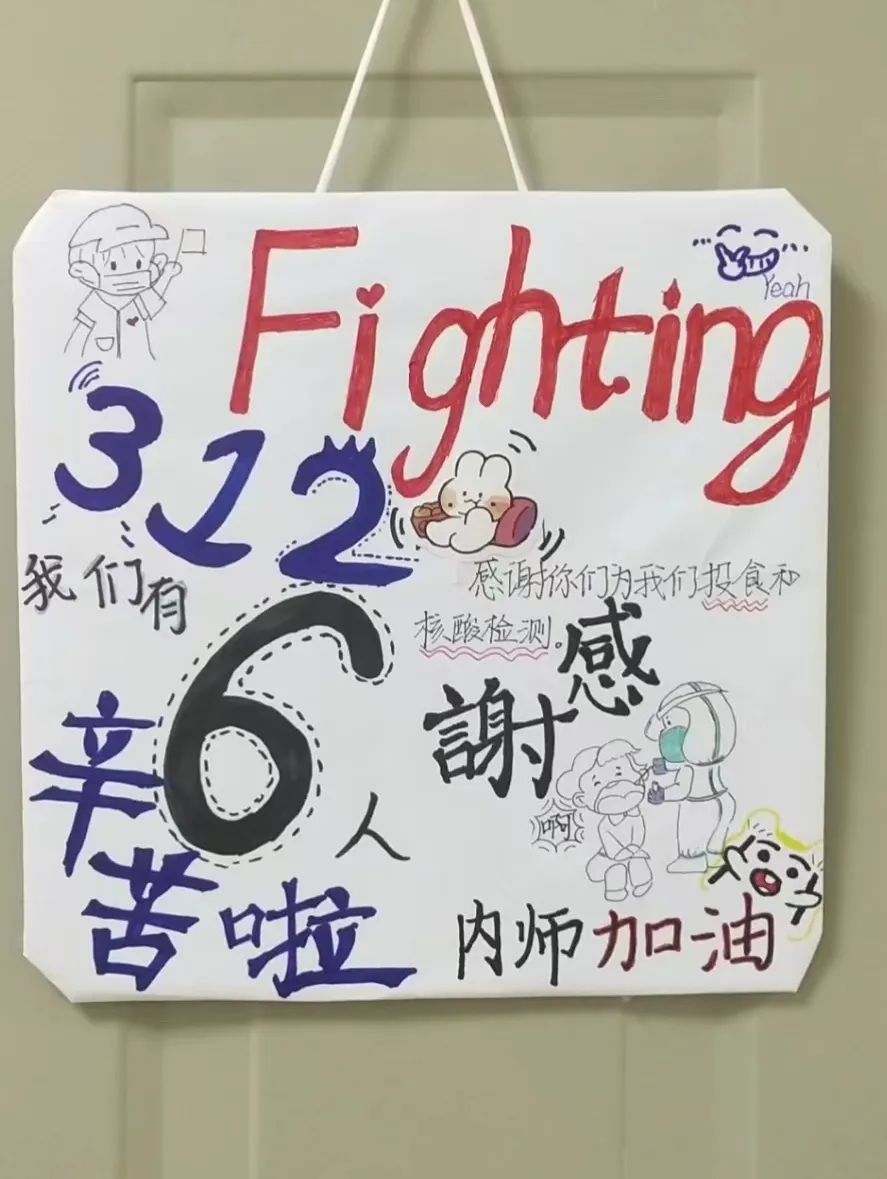 Fighting
Yeah
312
我们有
6
人
感谢你们为我们投食和
核酸检测。
感
謝
啊
辛
苦啦
内师加油